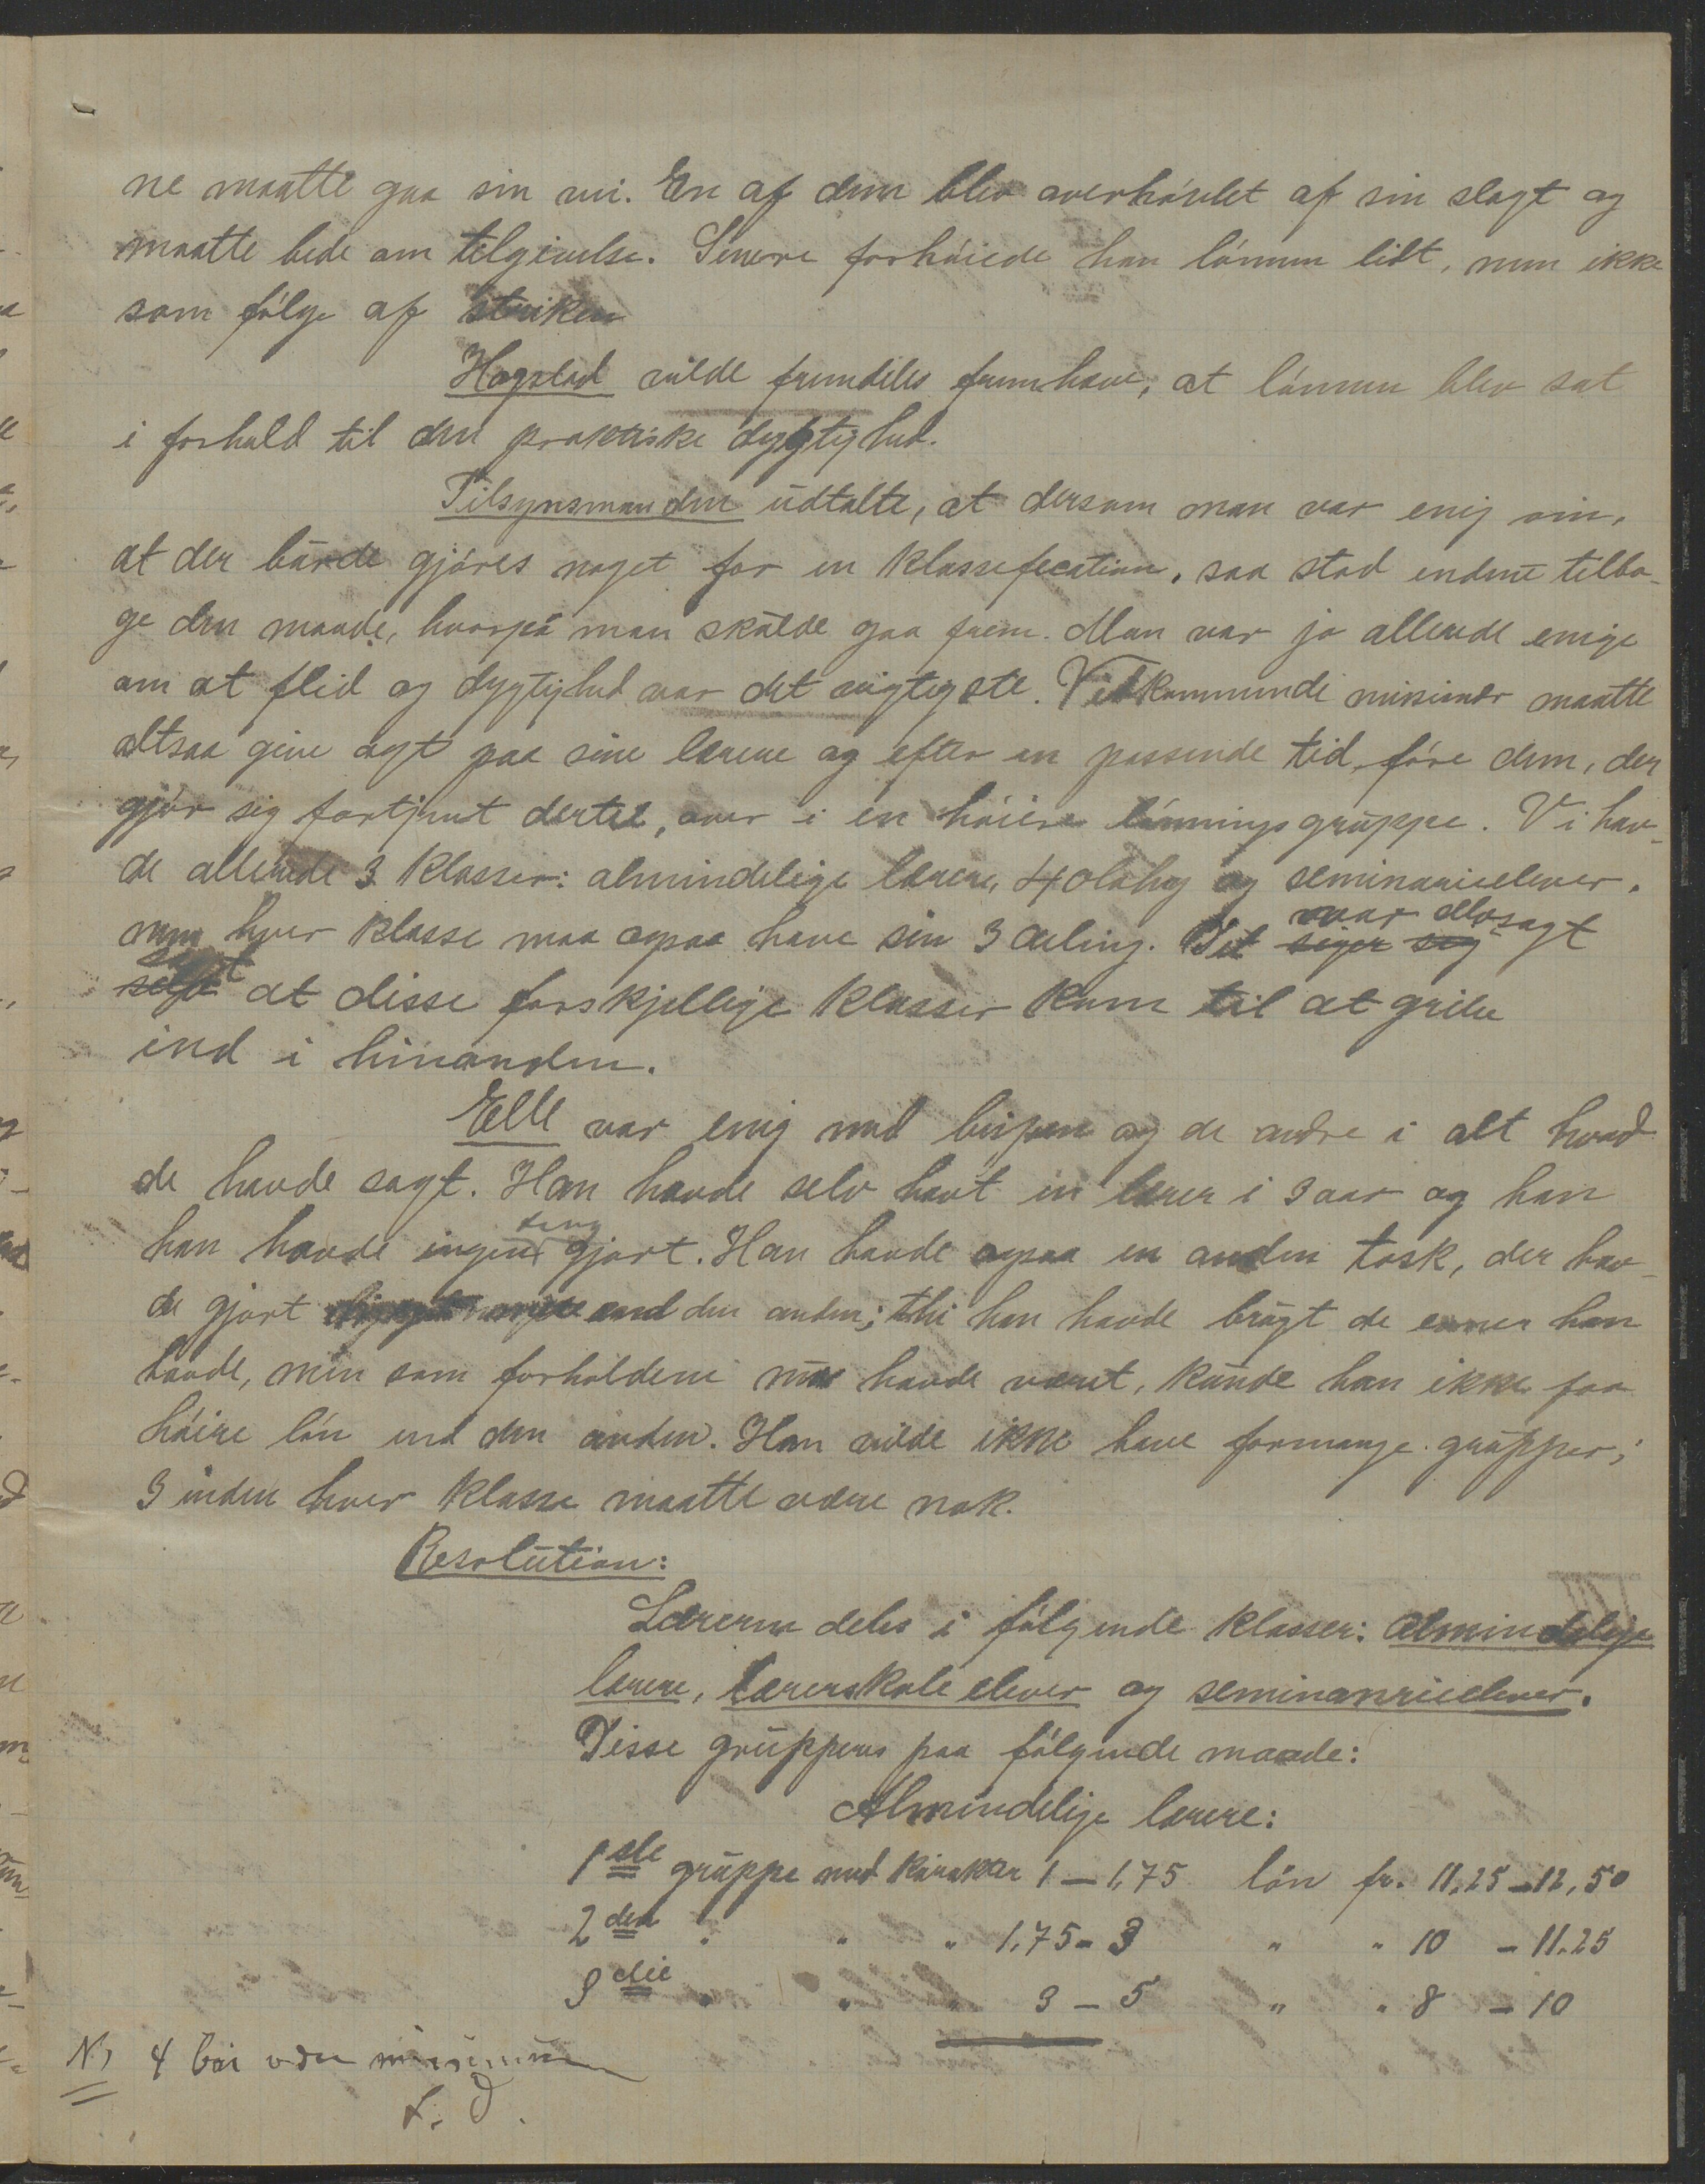 ne maatte gaa sin vei. En af dem blev overhøvlet af sin slægt og
maatte bede om tilgivelse. Senere forhøiede han lønnen lidt, men ikke
som følge af striken
Hogstad vilde fremdeles fremhæve, at lønnen blev sat
i forhold til den praktiske dygtighed.
Tilsynsmanden udtalte, at dersom man var enig om,
at der burde gjøres noget for en klassefecation, saa stod endnu tilba-
ge den maade, hvorpå man skulde gaa frem. Man var jo allerede enige
om at flid og dygtighed var det vigtigste. Vedkommende misionær maatte
altsaa give agt paa sine lærere og efter en passende tid føre dem, der
gjør sig fortjent dertil, over i en høiere lønningsgruppe. Vi hav-
de allerede 3 klasser: almindelige lærere, 4olahy og seminarieelever.
men hver klasse maa ogsaa have sin 3 deling. Det siger sig var altsagt
selvt at disse forskjellige klasser kom til at gribe
ind i hinanden.
Elle var enig med bispen og de andre i alt hvad
de havde sagt. Han havde selv havt en lærer i 3 aar og han
han havde ingen ting gjort. Han havde ogsaa en anden task, der hav-
de gjort meget mere end den anden; thi han havde brugt de evner han
havde, men som forholdene nu havde været, kunde han ikke faa
høiere løn end den anden. Han vilde ikke have formange grupper;
3 inden hver klasse maatte være nok.
Resolution:
Lærerne deles i følgende klasser: Almindelige
lærere, lærerskoleelever og seminarieelever.
Disse grupperes paa følgende maade:
Almindelige lærere:
1ste gruppe med karakter 1 – 1,75 løn fr. 11,25 – 12,50
2den " " " 1,75 – 3 " " 10 – 11.25
3die " " " 3 – 5 " " 8 – 10
N, 4 bør være minimum
L. D.